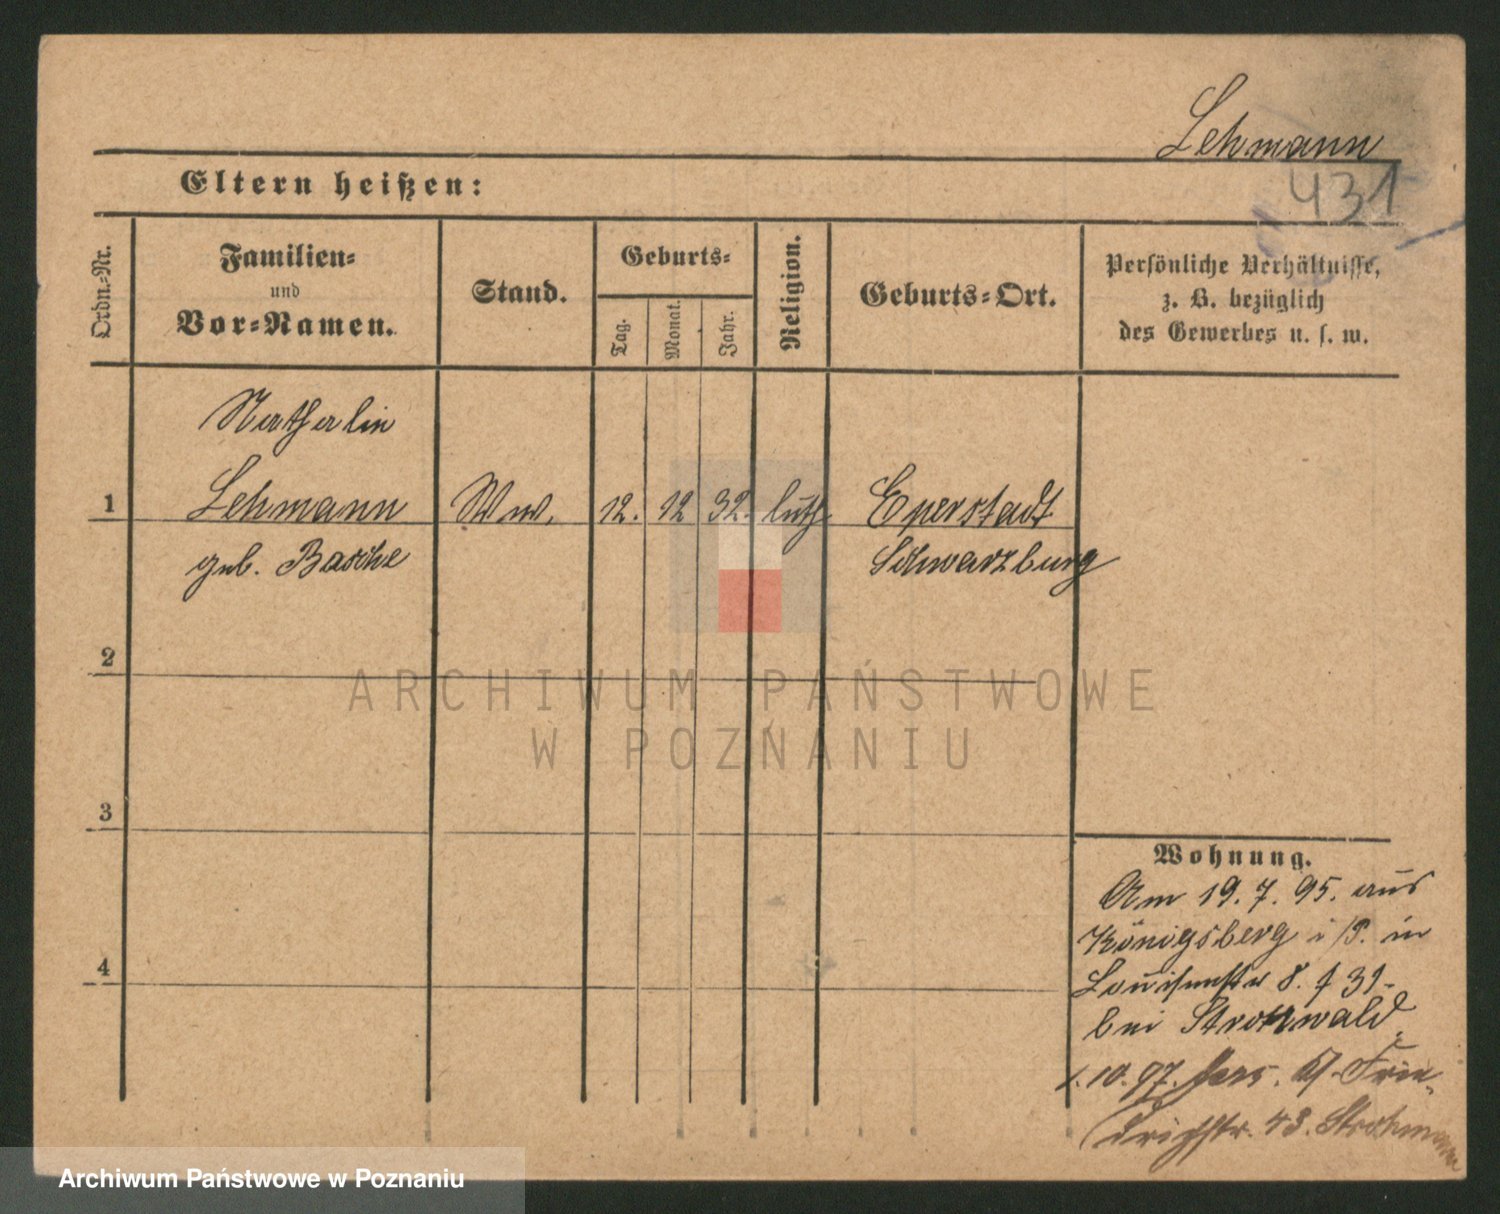 Lehmann
431
Eltern heißen:
Ordn.-Nr.
Familien-
und
Vor-Namen.
Stand.
Geburts-
Tag.
Monat.
Jahr.
Religion.
Geburts-Ort.
Persönliche Verhältnisse,
z. B. bezüglich
des Gewerbes u. s. w.
Nathalie
1 Lehmann Ww. 12. 12 32. luth. Eperstadt
geb. Basche Schwarzburg
2
3
4
Wohnung.
Am 19. 7. 95. aus
Königsberg i/P. in
Louisenstr 8. 31-
bei Strohwald
1.10.97. Frie-
drichstr. 43. Strohmann
ARCHIWUM PAŃSTWOWE
W POZNANIU
Archiwum Państwowe w Poznaniu